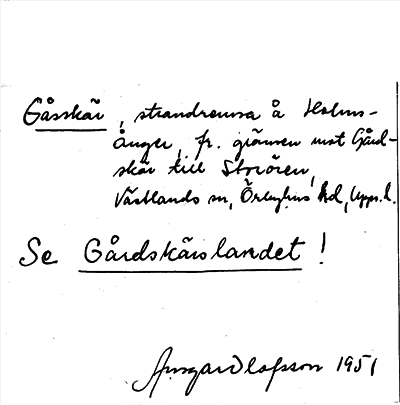 Gåsskär, strandremsa å Holms-
ånger, fr. gränsen mot Gård-
skär till Storören,
Västlands sn, Örbyhus hd, Upps. l.
Se Gårdskärslandet!
Ansgar Olofsson 1951